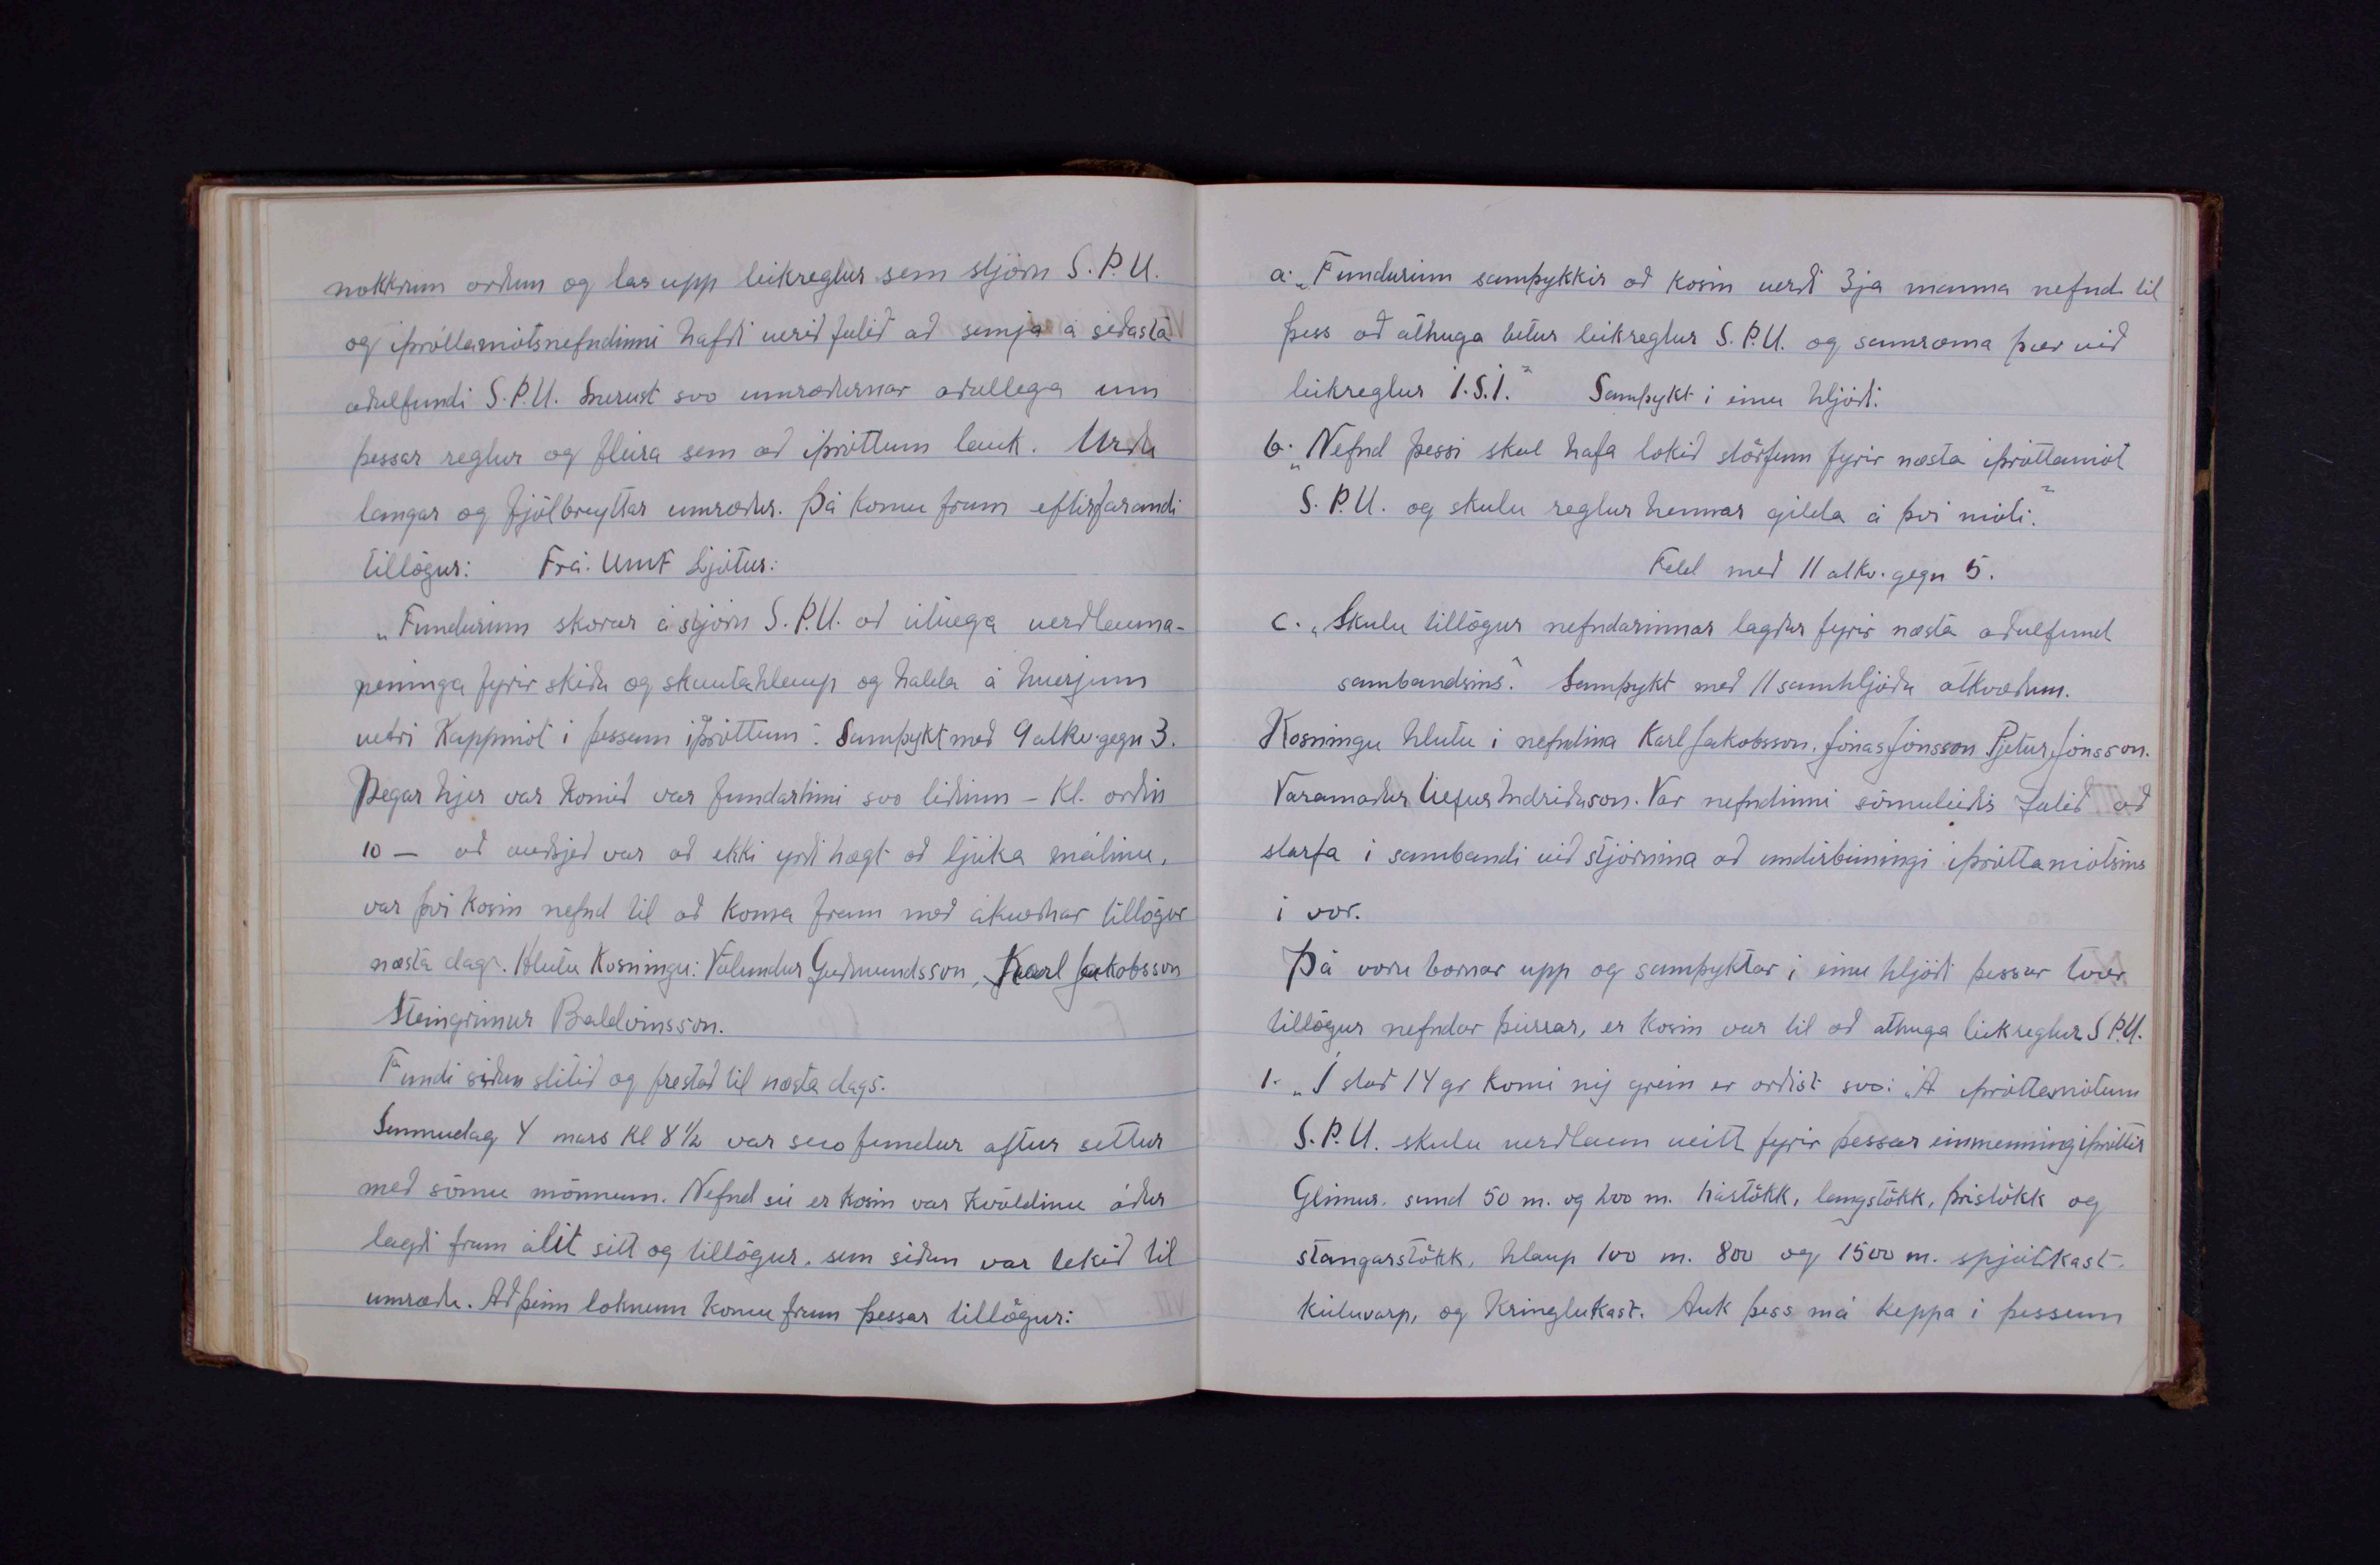 nokkrum orðum og las upp leikreglur sem stjórn S.Þ.U.
og íþróttamótsnefndinni hafði verið falið að semja á síðasta
aðalfundi S.Þ.U. Snerust svo umræðurnar aðallega um
þessar reglur og fleira sem að íþróttum lauk. Urðu
langar og fjölbreyttar umræður. Þá komu fram eftirfarandi
tillögur: Frá. Umf Ljótur:
„Fundurinn skorar á stjórn S.Þ.U. að útvega verðlauna-
peninga fyrir skíða og skautahlaup og halda á hverjum
vetri Kappmót í þessum íþróttum“. Samþykt með 9 atkv. gegn 3.
Þegar hjer var komið var fundartími svo liðinn - Kl. orðin
10 - að auðsjeð var að ekki yrði hægt að ljúka málinu,
var því kosin nefnd til að koma fram með ákveðnar tillögur
næsta dag. Hlutu kosningu: Völundur Guðmundsson, Karl Jakobsson
Steingrímur Baldvinsson.
Fundi síðan slitið og frestað til næsta dags.
Sunnudag 4 mars Kl 8 1/2 var svo fundur aftur settur
með sömu mönnum. Nefnd sú er kosin var kvöldinu áður
lagði fram álit sitt og tillögur, sem síðan var tekið til
umræðu. Að þeim loknum komu fram þessar tillögur:
a. „Fundurinn samþykkir að kosin verði 3ja manna nefnd til
þess að athuga betur leikreglur S.Þ.U. og samræma þær við
leikreglur Í.S.Í.“ Samþykt í einu hljóði.
b. „Nefnd þessi skal hafa lokið störfum fyrir næsta íþróttamót
S.Þ.U. og skulu reglur hennar gilda á því móti.“
Feld með 11 atkv. gegn 5.
c. „Skulu tillögur nefndarinnar lagðar fyrir næsta aðalfund
sambandsins“. Samþykt með 11 samhljóða atkvæðum.
Kosningu hlutu í nefndina Karl Jakobsson, Jónas Jónsson Pjetur Jónsson.
Varamaður Úlfur Indriðason. Var nefndinni sömuleiðis falið að
starfa í sambandi við stjórnina að undirbúningi íþróttamótsins
í vor.
Þá voru bornar upp og samþyktar í einu hljóði þessar tvær
tillögur nefndar þeirrar, er kosin var til að athuga leikreglur S Þ.U.
1. „Í stað 14 gr komi ný grein er orðist svo: „Á íþróttamótum
S.Þ.U. skulu verðlaun veitt fyrir þessar einmenningíþróttir
Glímur. sund 50 m. og 200 m. hástökk, langstökk, þrístökk og
stangarstökk, hlaup 100 m. 800 og 1500 m. spjótkast.
kúluvarp, og Kringlukast. Auk þess má keppa í þessum